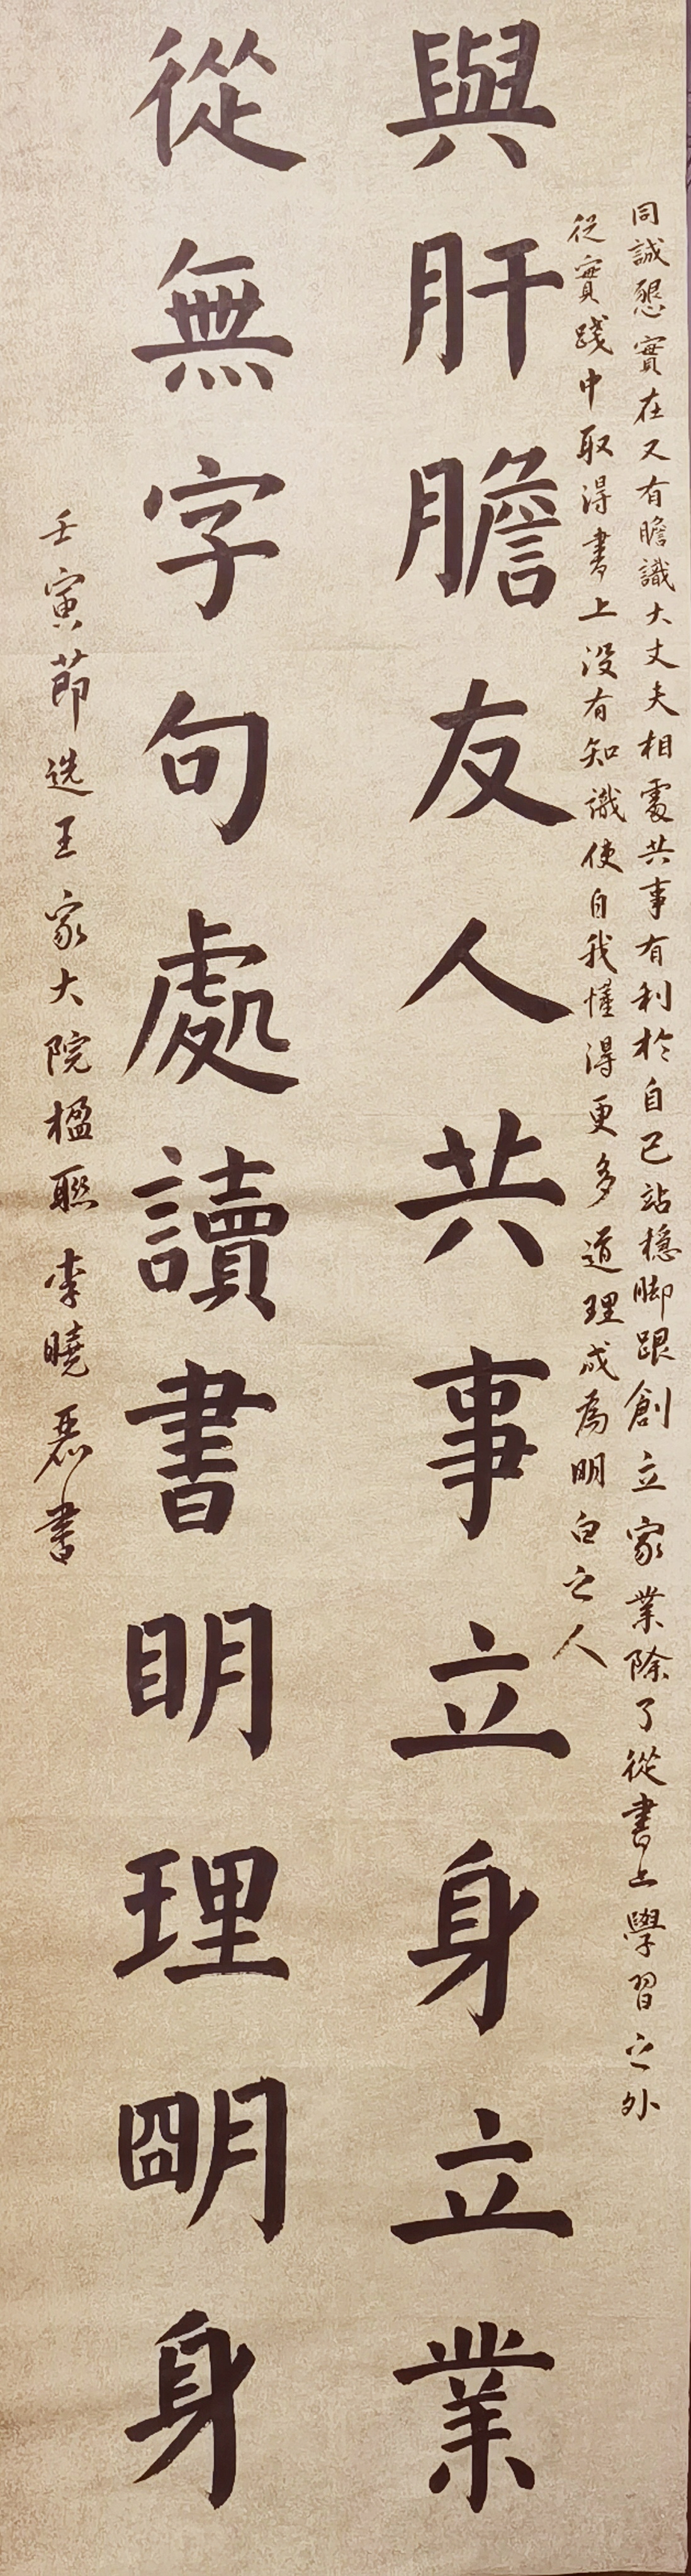 同誠懇實在又有膽識大丈夫相處共事有利於自己站穩脚跟創立家業除了從書上學習之外
從實踐中取得書上没有知識使自我懂得更多道理成為明白之人
與肝膽友人共事立身立業
從無字句處讀書眀理朙身
壬寅莭选王家大院楹聯李曉書